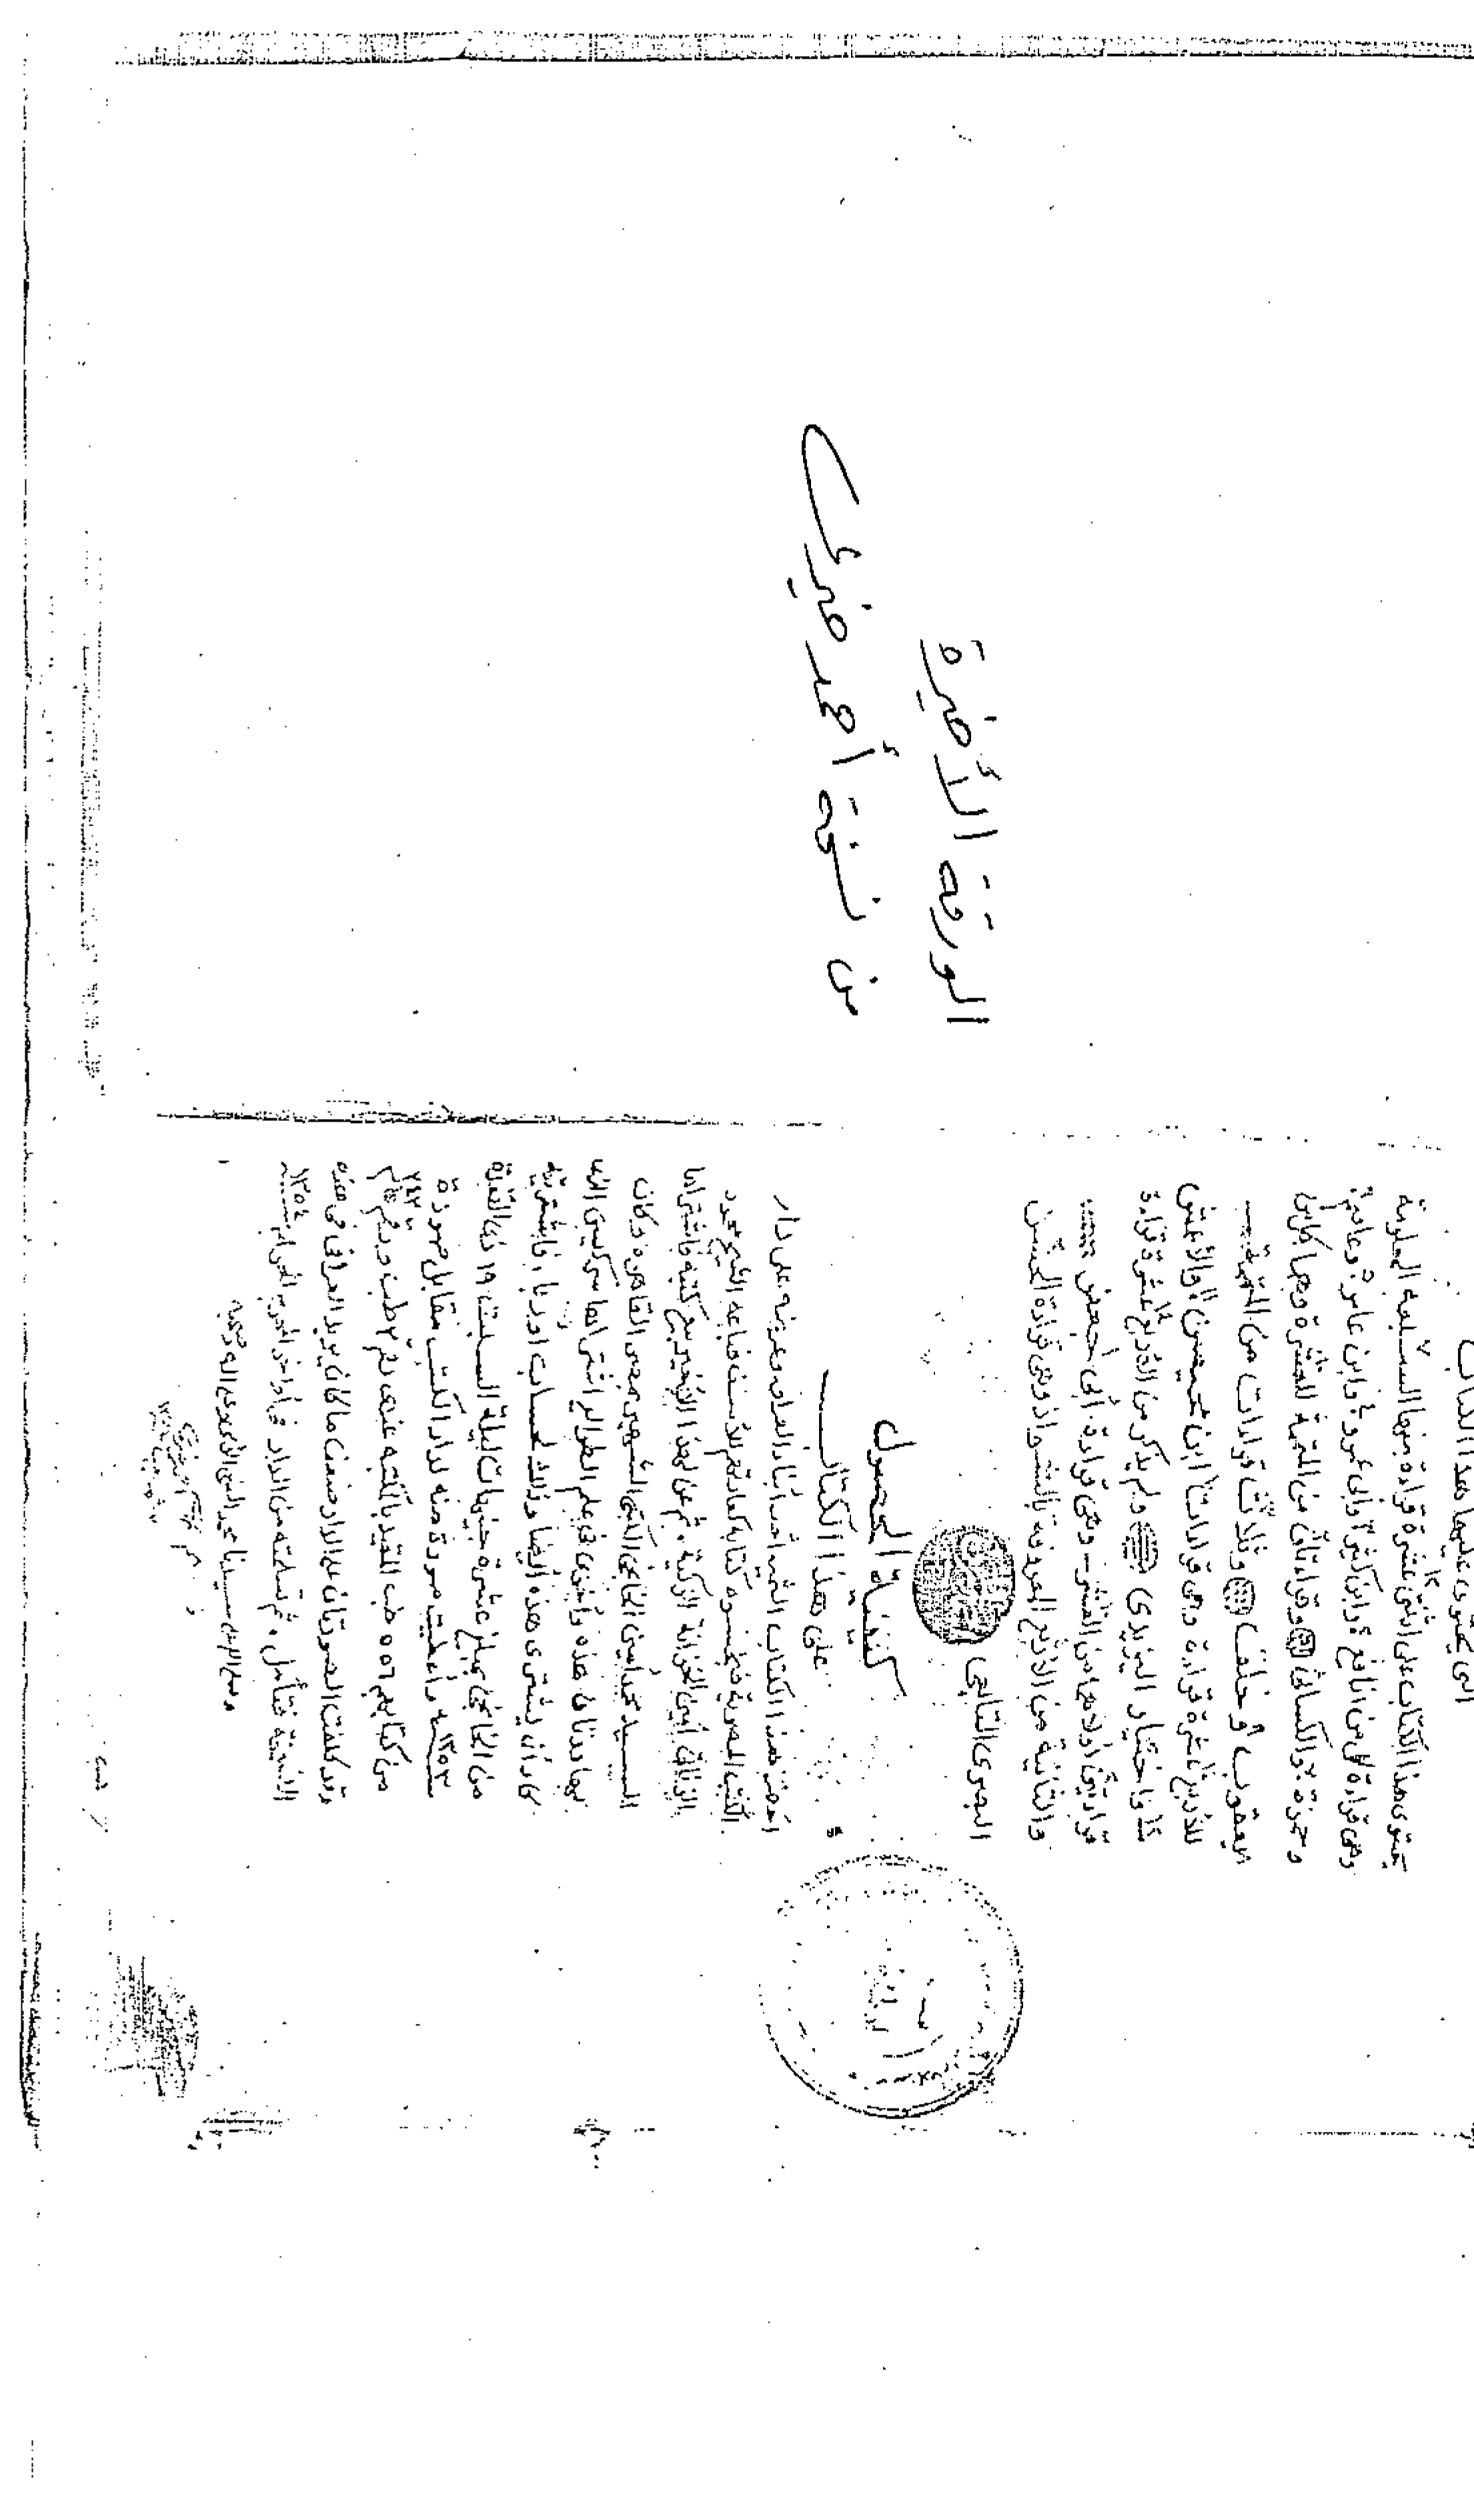 الورقة الأخيرة
من نسخة أحمد خيري
التي يحتوي عليها هذا الكتاب
يحتوي هذا الكتاب على اثنتي عشرة قراءة منها السبعة المعلومة
وهي قراءة كل من نافع وابن كثير وأبي عمرو وابن عامر وعاصم
وحمزة والكسائي وقراءتان من المتممة للعشرة وهما قراءتي
يعقوب وخلف وثلاث قراءات من المتممة
للأربع عشرة قراءة وهي قراءات ابن محيصن والأعمش
واختيار اليزيدي ولم يذكر من الأربع عشرة قراءة
قراءتين أولاهما من العشر - وهي قراءة أبي جعفر
والثانية من الأربع المعروفة بالشواذ وهي قراءة الحسن
البصري التابعي
كيفية الحصول
على هذا الكتاب
أحضر هذا الكتاب الشيخ أحد أبناء العراق وعرضه على دار
الكتب المصرية فبخسوه كتابه كعادتهم للأسف فباعه الشيخ محمود
أمين الخزانة الزكية. ثم عن لهذا الأخير بيع كتبه فاشتراها
السيد محمد أمين الخانجي الكتبي الشهير بمصر القاهرة وكان
بها مدتان هذه وأخرى في علم
كاد أن يشتري هذه أيضا وذلك لحساب أوربا، فاشتريته
من الخانجي بمبلغ عشرة جنيهات ليلة السبت ١٩ ذي القعدة
سنة ١٣٥٣ وأعطيت صورة منه لدار الكتب مقابل صورة
من كتابهم ٥٥٦ طب المقيد بالمكتبة عندي رقم
وقد كلفت الصورتان على الدار ضعف ما كان يريد العراقي في هذه
النسخة فتأمل. ثم تسلمته من الدار في أواخر المحرم الحرام سنة ١٣٥٤
وصلى الله على سيدنا محمد النبي الأمي وعلى آله وصحبه